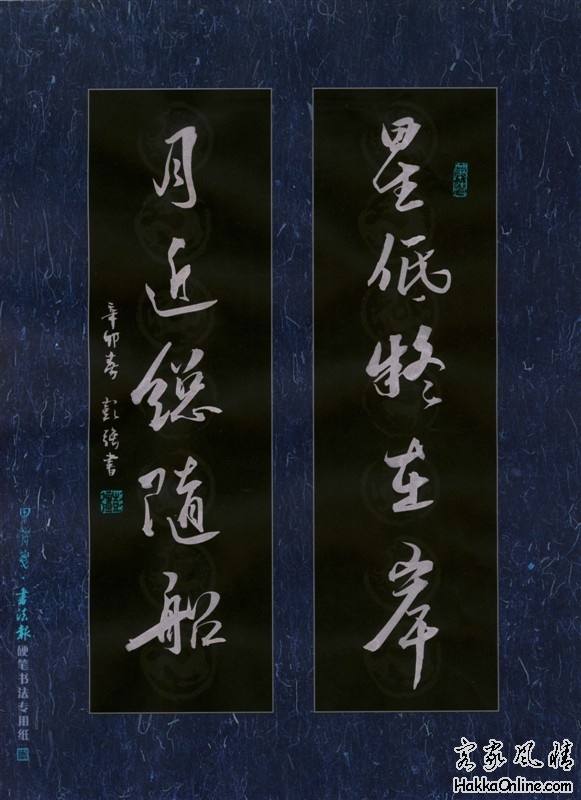 星低疑在岸
月近總随船
辛卯春 彭强书
书法报 硬笔书法专用纸
客家风情
HakkaOnline.com